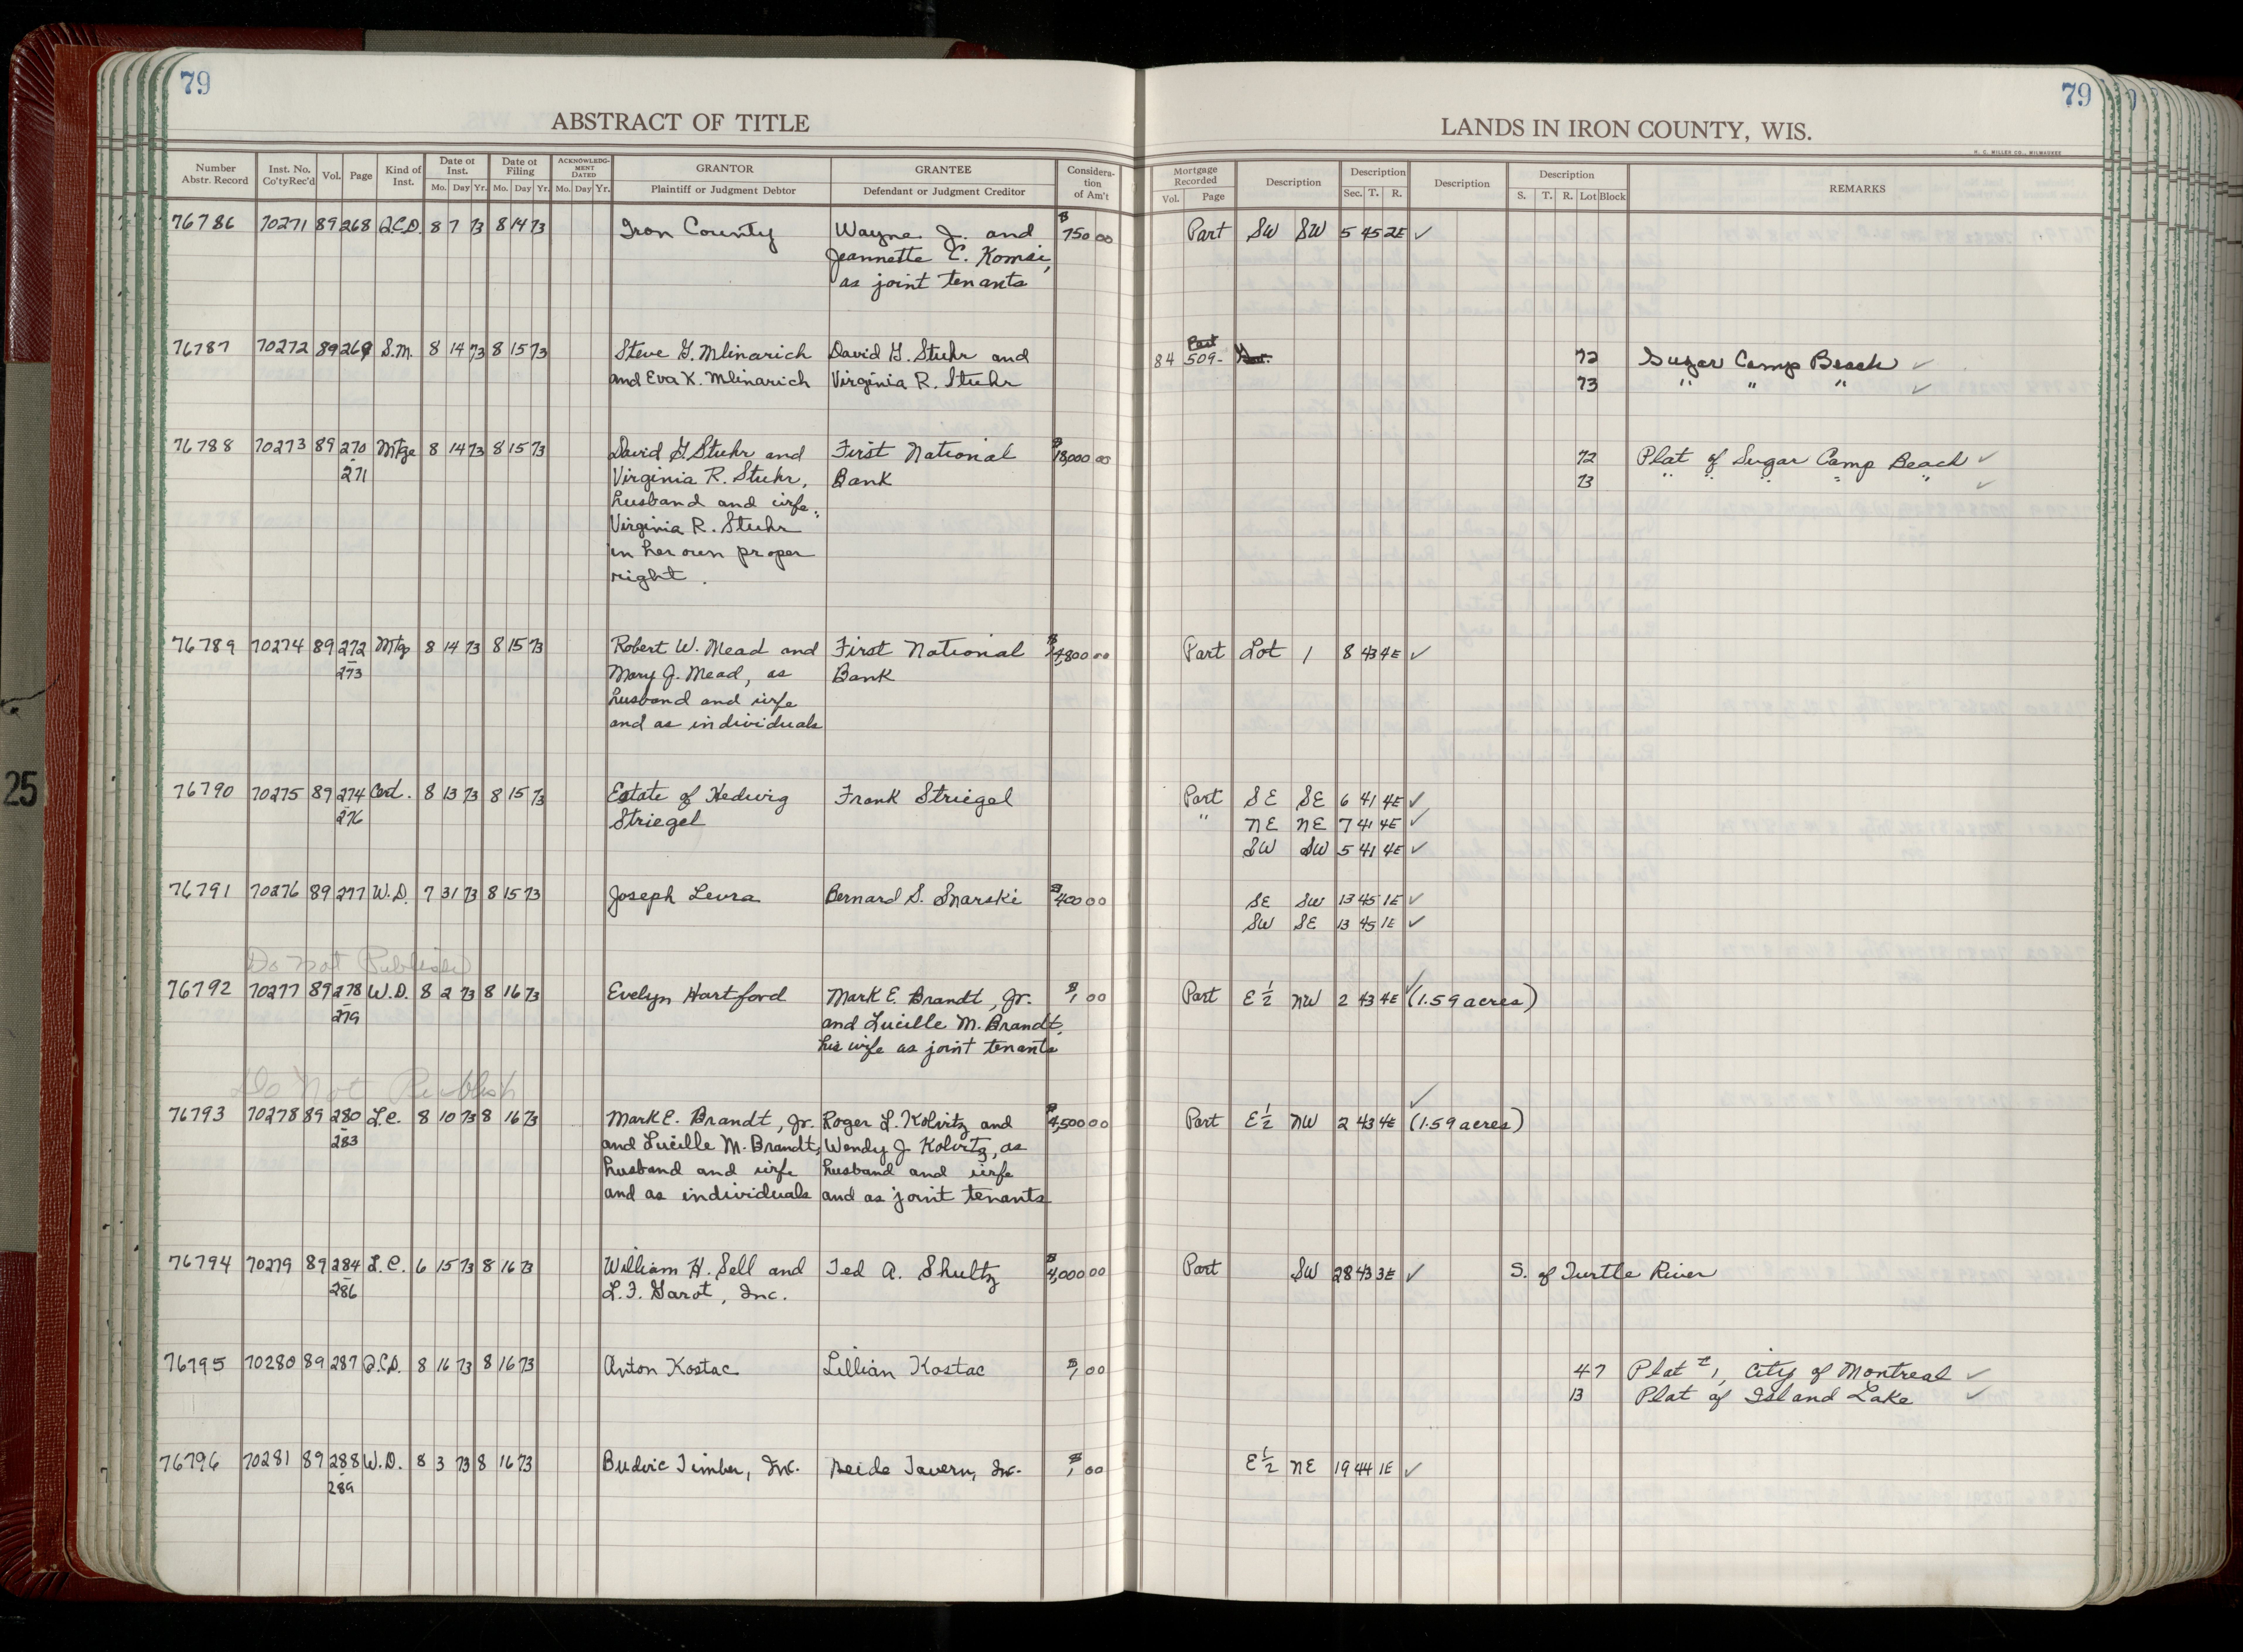 79
79
ABSTRACT OF TITLE
LANDS IN IRON COUNTY, WIS.
H. C. MILLER CO., MILWAUKEE
Number Abstr. Record | Inst. No. Co'ty Rec'd | Vol. | Page | Kind of Inst. | Date of Inst. Mo. Day Yr. | Date of Filing Mo. Day Yr. | ACKNOWLEDGMENT DATED Mo. Day Yr. | GRANTOR Plaintiff or Judgment Debtor | GRANTEE Defendant or Judgment Creditor | Consideration of Am't | Mortgage Recorded Vol. Page | Description | Description Sec. T. R. | Description | Description S. T. R. Lot Block | REMARKS
76786 70271 89 268 Q.C.D. 8 7 73 8 14 73 Iron County Wayne J. and $750 00 Part SW SW 5 45 2E ✓
Jeannette C. Komsi,
as joint tenants
76787 70272 89 269 S.M. 8 14 73 8 15 73 Steve G. Mlinarich David G. Stuhr and 84 Part 509- 72 Sugar Camp Beach ✓
and Eva K. Mlinarich Virginia R. Stuhr 73 " " " ✓
76788 70273 89 270 Mtge 8 14 73 8 15 73 David G Stuhr and First National $18,000 00 72 Plat of Sugar Camp Beach ✓
- 271 Virginia R. Stuhr, Bank 73 " " " " " ✓
husband and wife;
Virginia R. Stuhr
in her own proper
right.
76789 70274 89 272 Mtg 8 14 73 8 15 73 Robert W. Mead and First National $4,800 00 Part Lot 1 8 43 4E ✓
- 273 Mary J. Mead, as Bank
husband and wife
and as individuals
76790 70275 89 274 Cert. 8 13 73 8 15 73 Estate of Hedwig Frank Striegel Part SE SE 6 41 4E ✓
- 276 Striegel " NE NE 7 41 4E ✓
SW SW 5 41 4E ✓
76791 70276 89 277 W.D. 7 31 73 8 15 73 Joseph Levra Bernard S. Snarski $400 00 SE SW 13 45 1E ✓
SW SE 13 45 1E ✓
Do not Publish
76792 70277 89 278 W.D. 8 2 73 8 16 73 Evelyn Hartford Mark E. Brandt, Jr. $1 00 Part E½ NW 2 43 4E ✓ (1.59 acres)
- 279 and Lucille M. Brandt,
his wife as joint tenants
Do Not Publish
76793 70278 89 280 L.C. 8 10 73 8 16 73 Mark E. Brandt, Jr. Roger L. Kolvitz and $4,500 00 Part E½ NW 2 43 4E ✓ (1.59 acres)
- 283 and Lucille M. Brandt, Wendy J. Kolvitz, as
husband and wife husband and wife
and as individuals and as joint tenants
76794 70279 89 284 L.C. 6 15 73 8 16 73 William H. Sell and Ted A. Shultz $4,000 00 Part SW 28 43 3E ✓ S. of Turtle River
- 286 L.F. Garot, Inc.
76795 70280 89 287 Q.C.D. 8 16 73 8 16 73 Anton Kostac Lillian Kostac $1 00 47 Plat # 1, City of Montreal ✓
13 Plat of Island Lake ✓
76796 70281 89 288 W.D. 8 3 73 8 16 73 Budvic Timber, Inc. Tavern, Inc. $1 00 E½ NE 19 44 1E ✓
- 289
25